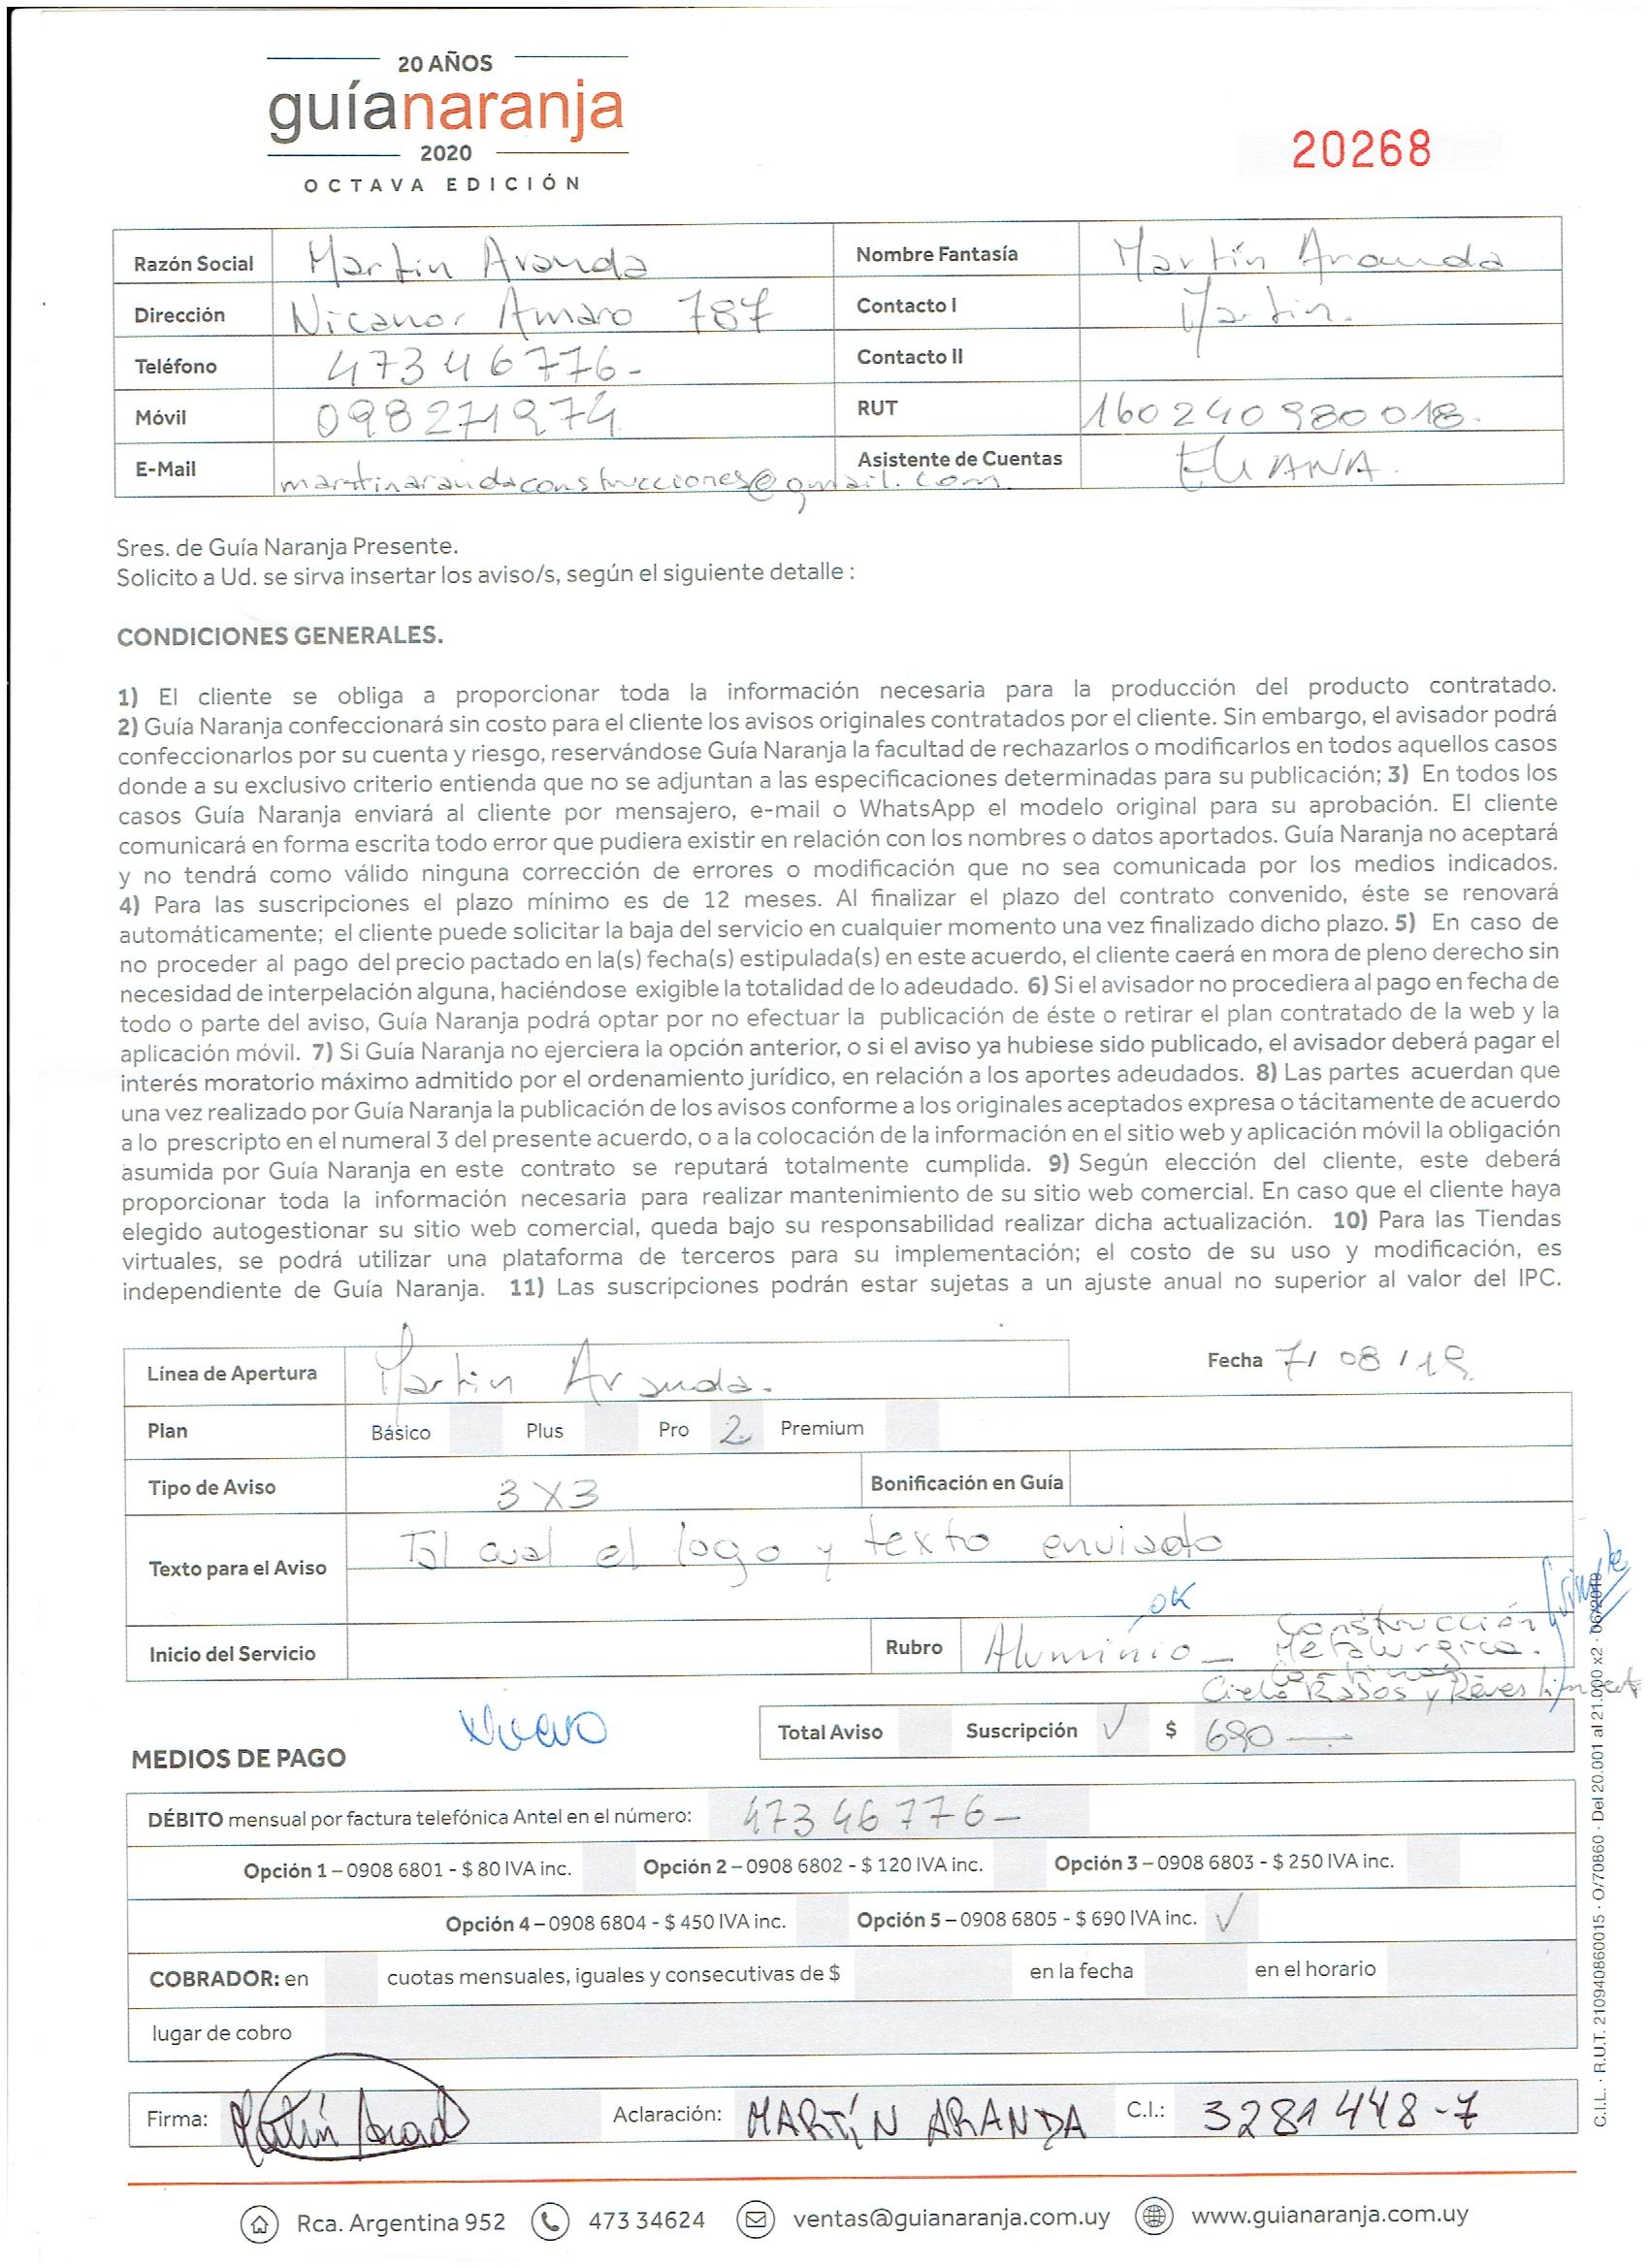 20 AÑOS
guíanaranja
2020
OCTAVA EDICIÓN
20268
Razón Social Martin Aranda Nombre Fantasía Martín Aranda
Dirección Nicanor Amaro 787 Contacto I Martin.
Teléfono 473 46776- Contacto II
Móvil 098271974 RUT 160240980018.
E-Mail martinarandaconstrucciones@gmail.com. Asistente de Cuentas ELIANA.
Sres. de Guía Naranja Presente.
Solicito a Ud. se sirva insertar los aviso/s, según el siguiente detalle :
CONDICIONES GENERALES.
1) El cliente se obliga a proporcionar toda la información necesaria para la producción del producto contratado.
2) Guía Naranja confeccionará sin costo para el cliente los avisos originales contratados por el cliente. Sin embargo, el avisador podrá
confeccionarlos por su cuenta y riesgo, reservándose Guía Naranja la facultad de rechazarlos o modificarlos en todos aquellos casos
donde a su exclusivo criterio entienda que no se adjuntan a las especificaciones determinadas para su publicación; 3) En todos los
casos Guía Naranja enviará al cliente por mensajero, e-mail o WhatsApp el modelo original para su aprobación. El cliente
comunicará en forma escrita todo error que pudiera existir en relación con los nombres o datos aportados. Guía Naranja no aceptará
y no tendrá como válido ninguna corrección de errores o modificación que no sea comunicada por los medios indicados.
4) Para las suscripciones el plazo mínimo es de 12 meses. Al finalizar el plazo del contrato convenido, éste se renovará
automáticamente; el cliente puede solicitar la baja del servicio en cualquier momento una vez finalizado dicho plazo. 5) En caso de
no proceder al pago del precio pactado en la(s) fecha(s) estipulada(s) en este acuerdo, el cliente caerá en mora de pleno derecho sin
necesidad de interpelación alguna, haciéndose exigible la totalidad de lo adeudado. 6) Si el avisador no procediera al pago en fecha de
todo o parte del aviso, Guía Naranja podrá optar por no efectuar la publicación de éste o retirar el plan contratado de la web y la
aplicación móvil. 7) Si Guía Naranja no ejerciera la opción anterior, o si el aviso ya hubiese sido publicado, el avisador deberá pagar el
interés moratorio máximo admitido por el ordenamiento jurídico, en relación a los aportes adeudados. 8) Las partes acuerdan que
una vez realizado por Guía Naranja la publicación de los avisos conforme a los originales aceptados expresa o tácitamente de acuerdo
a lo prescripto en el numeral 3 del presente acuerdo, o a la colocación de la información en el sitio web y aplicación móvil la obligación
asumida por Guía Naranja en este contrato se reputará totalmente cumplida. 9) Según elección del cliente, este deberá
proporcionar toda la información necesaria para realizar mantenimiento de su sitio web comercial. En caso que el cliente haya
elegido autogestionar su sitio web comercial, queda bajo su responsabilidad realizar dicha actualización. 10) Para las Tiendas
virtuales, se podrá utilizar una plataforma de terceros para su implementación; el costo de su uso y modificación, es
independiente de Guía Naranja. 11) Las suscripciones podrán estar sujetas a un ajuste anual no superior al valor del IPC.
Línea de Apertura Martin Aranda. Fecha 7/ 08 / 19
Plan Básico Plus Pro 2 Premium
Tipo de Aviso 3x3 Bonificación en Guía
Texto para el Aviso Tal cual el logo y texto enviado
ok
Inicio del Servicio Rubro Aluminio - Construcción
Metalurgica.
Cortinas
Cielo Rasos y Revestimient
Nuevo
Total Aviso Suscripción ✓ $ 690
MEDIOS DE PAGO
DÉBITO mensual por factura telefónica Antel en el número: 473 46776-
Opción 1 – 0908 6801 - $ 80 IVA inc. Opción 2 – 0908 6802 - $ 120 IVA inc. Opción 3 – 0908 6803 - $ 250 IVA inc.
Opción 4 – 0908 6804 - $ 450 IVA inc. Opción 5 – 0908 6805 - $ 690 IVA inc. ✓
COBRADOR: en cuotas mensuales, iguales y consecutivas de $ en la fecha en el horario
lugar de cobro
Firma: Martín Arand Aclaración: MARTÍN ARANDA C.I.: 3281448-7
Rca. Argentina 952 473 34624 ventas@guianaranja.com.uy www.guianaranja.com.uy
C.I.L. · R.U.T. 210940860015 · O/70860 · Del 20.001 al 21.000 x2 · 06/2019